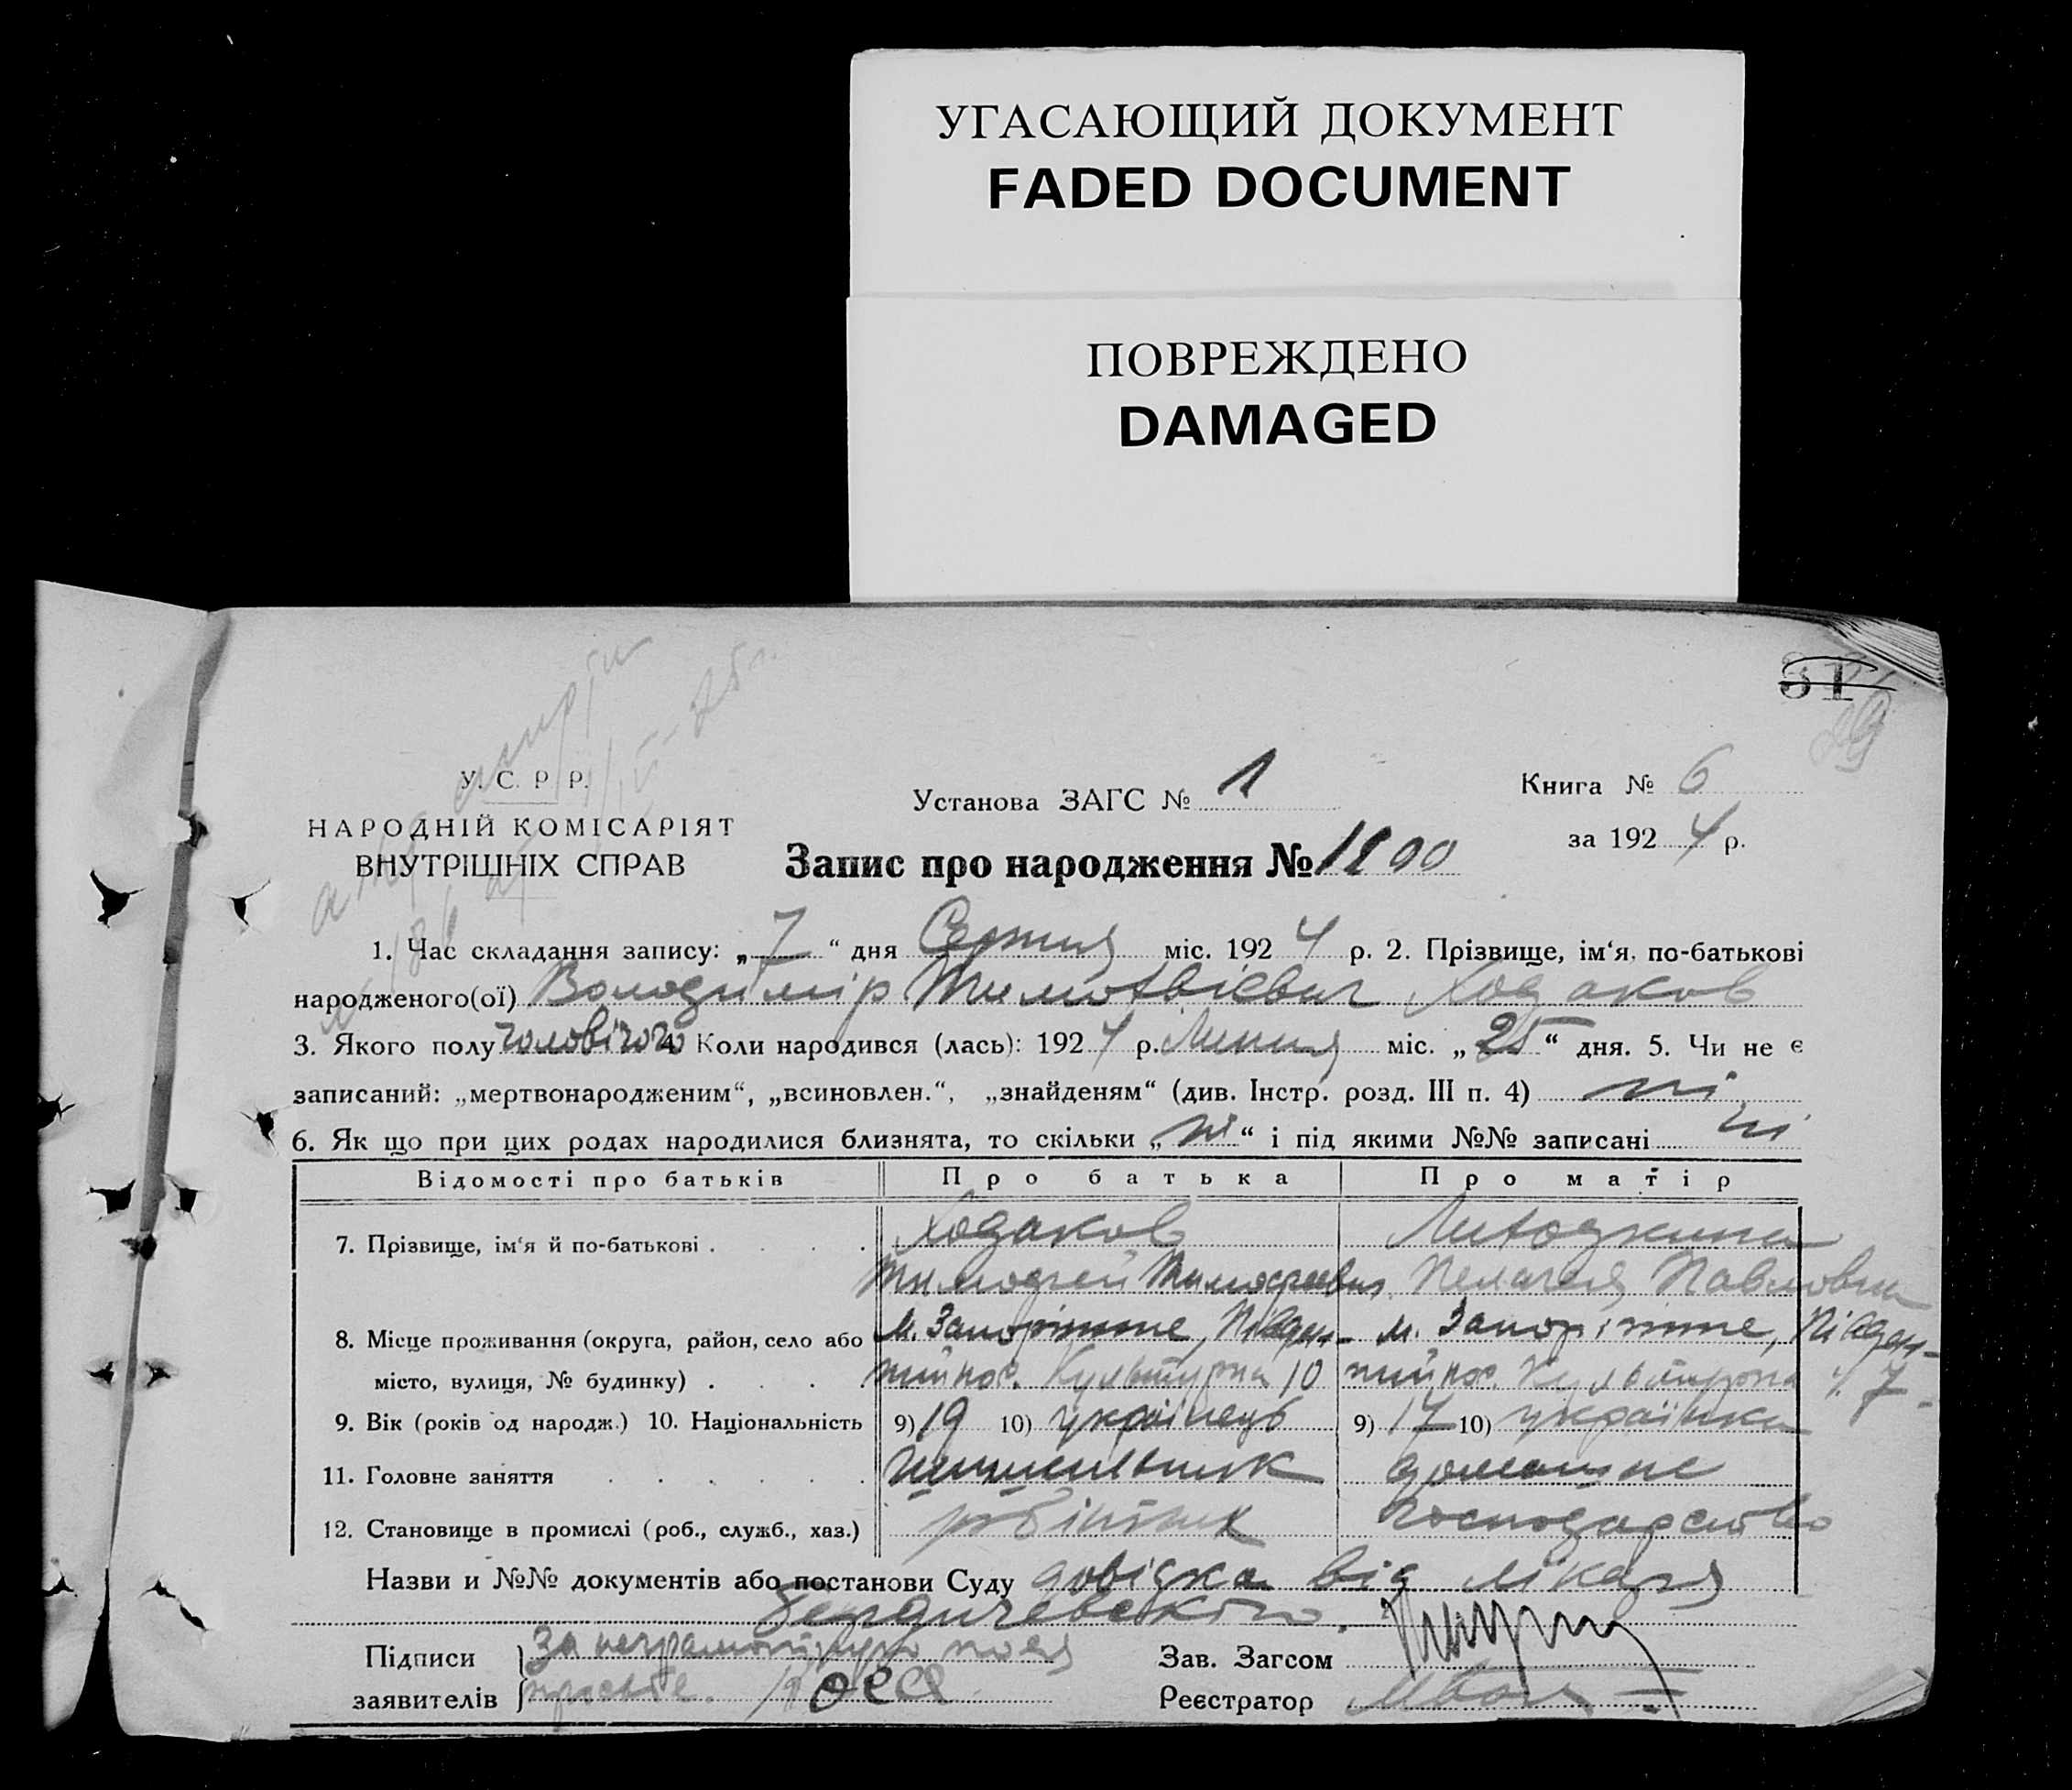 УГАСАЮЩИЙ ДОКУМЕНТ
FADED DOCUMENT
ПОВРЕЖДЕНО
DAMAGED
51
У. С. Р. Р.
НАРОДНІЙ КОМІСАРІЯТ
ВНУТРІШНІХ СПРАВ
Установа ЗАГС № 1
Книга № 6
за 1924 р.
Запис про народження № 1800
1. Час складання запису: „7“ дня Серпня міс. 1924 р. 2. Прізвище, ім‘я, по-батькові
народженого(ої) Володимір Тимофвієвич Ходаков
3. Якого полу чоловічого 4. Коли народився (лась): 1924 р. Липня міс. „25“ дня. 5. Чи не є
записаний: „мертвонародженим“, „всиновлен.“, „знайденям“ (див. Інстр. розд. III п. 4) ні
6. Як що при цих родах народилися близнята, то скільки „ні“ і під якими №№ записані ні
Відомості про батьків Про батька Про матір
7. Прізвище, ім‘я й по-батькові . . . . Ходаков
Тимофей Тимофеевич Пелагея Павловна
8. Місце проживання (округа, район, село або м. Запоріжжє, Півден- м. Запоріжжє, Півден-
місто, вулиця, № будинку) . . . . ний пос. Культурна 10 ний пос. Культурна 7
9. Вік (років од народж.) 10. Національність 9) 19 10) українець 9) 17 10) українка
11. Головне заняття . . . . . . домашнє
12. Становище в промислі (роб., служб., хаз.) робітник господарство
Назви и №№ документів або постанови Суду довідка від лікаря
Бердичевского.
Підписи За неграмотную
заявителів
Зав. Загсом
Реєстратор